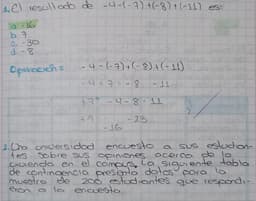 1. El resultado de -4-(-7)+(-8)+(-11) es:
a -16
b. 7
c. -30
d. -8
Operación = -4-(-7)+(-8)+(-11)
-4+7-8-11
+7 -4-8-11
+7 -23
-16
2. Una universidad encuesto a sus estudian-
tes sobre sus opiniones acerca de la
vivienda en el campus. La siguiente tabla
de contingencia presenta datos para la
muestra de 200 estudiantes que respondi-
eron a la encuesta.